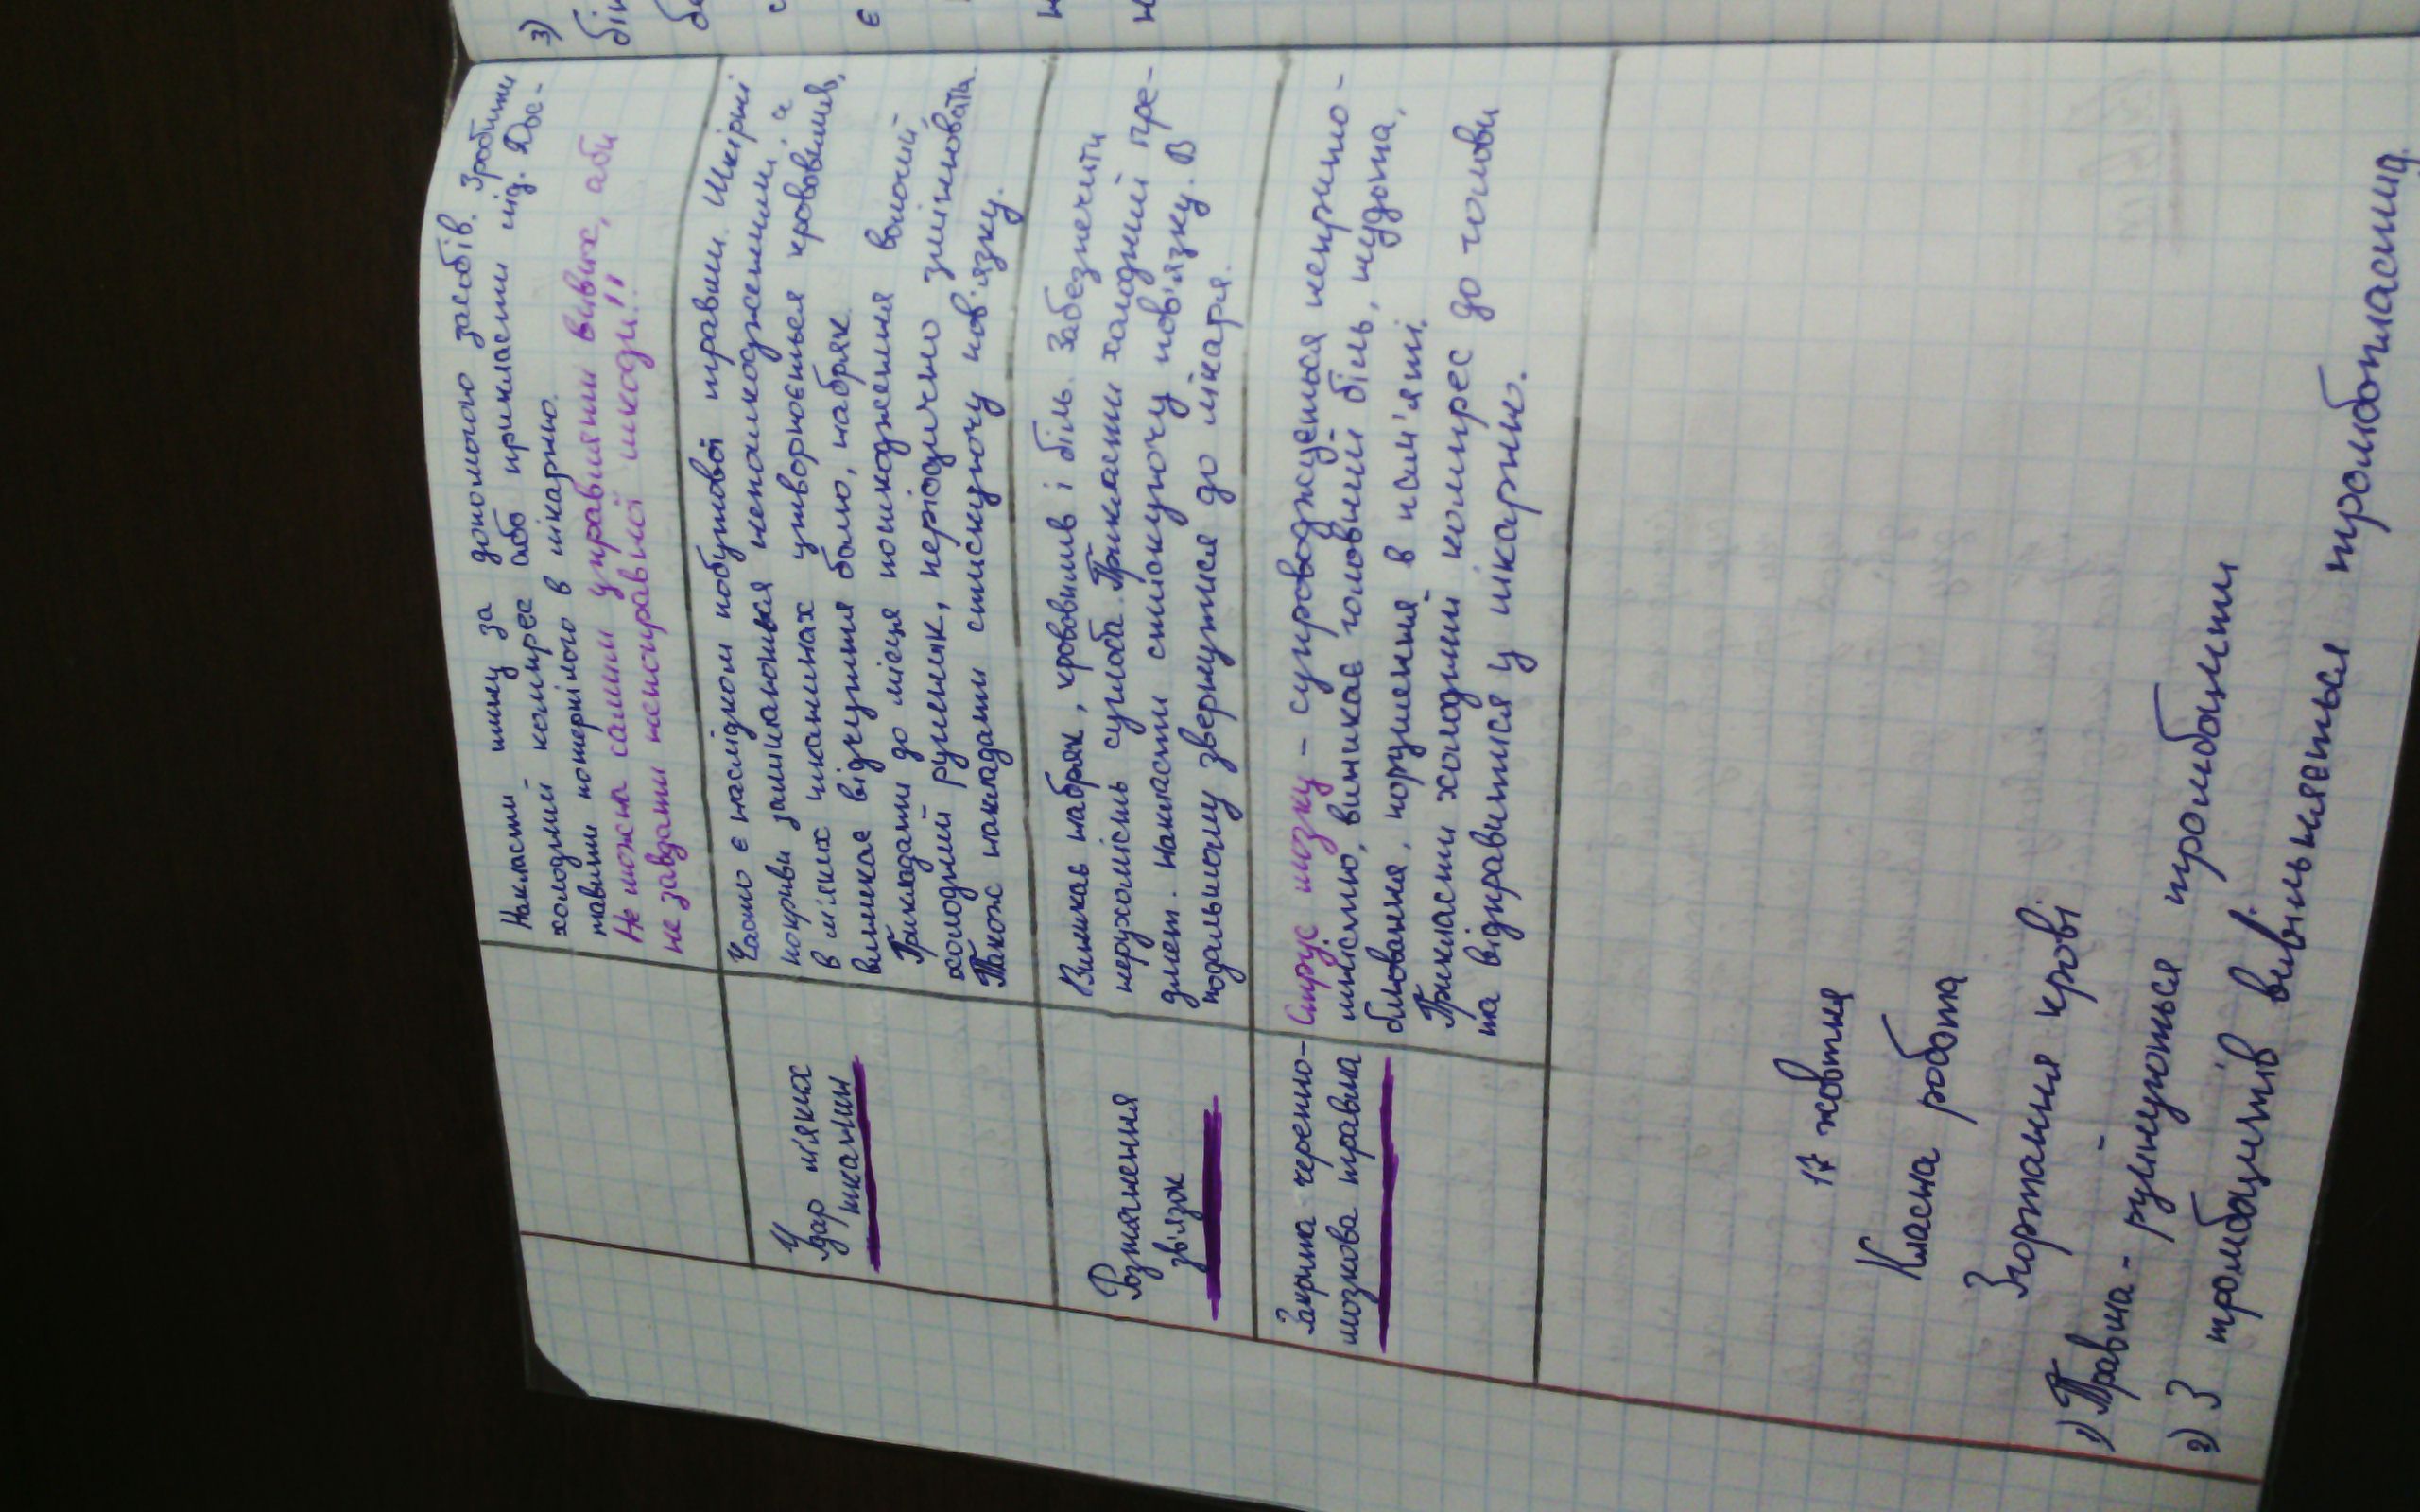 Накласти шину за допомогою засобів. Зробити
холодний компрес або прикласти лід. Дос-
тавити потерпілого в лікарню.
Не можна самим управляти вивих, аби
не завдати неисправної шкоди!!
Удар м'яких
тканин
Часто є наслідком побутової травми. Шкірні
покриви залишаються непошкодженими, а
в м'яких тканинах утворюється крововилив,
виникає відчуття болю, набряк.
Прикладати до місця пошкодження вологий,
холодний рушник, періодично змінювати.
Також накладати стискуючу пов'язку.
Розтягнення
зв'язок
Виникає набряк, крововилив і біль. Забезпечити
нерухомість суглоба. Прикласти холодний пре-
дмет. Накласти стискуючу пов'язку. В
подальшому звернутися до лікаря.
Закрита черепно-
мозкова травма
Струс мозку - супроводжується неприто-
мністю, виникає головний біль, нудота,
блювання, порушення в пам'яті.
Прикласти холодний компрес до голови
та відправитися у лікарню.
17 жовтня
Класна робота
Зсідання крові
1) Травма - руйнуються тромбоцити
2) З тромбоцитів вивільняється тромбопластин
3)